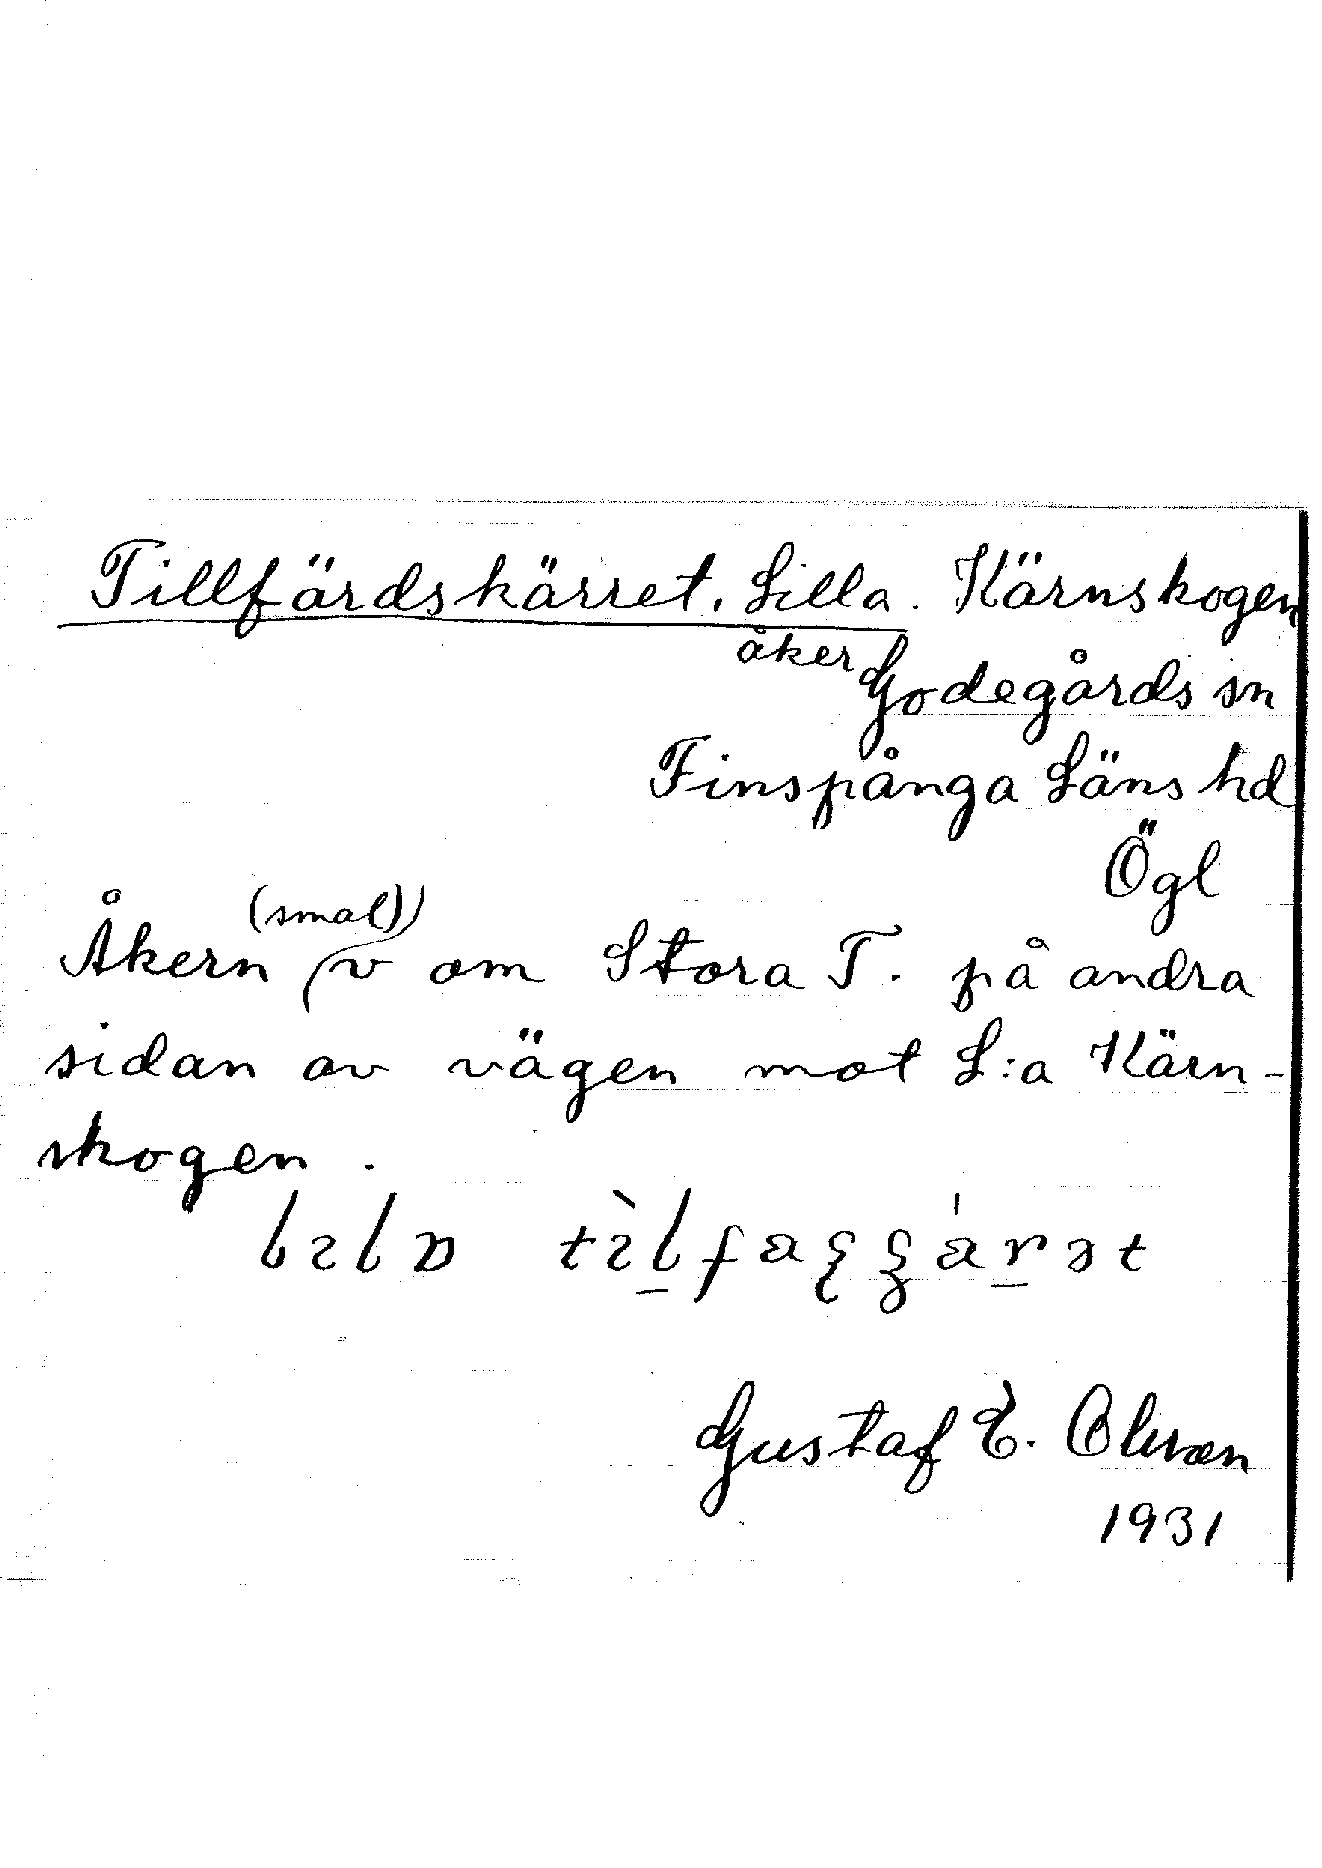 Tillfärdskärret, Lilla. Kärnskogen
åker Godegårds sn
Finspånga Läns hd
Ögl
Åkern (smal) v om Stora T. på andra
sidan av vägen mot L:a Kärn-
skogen.
Gustaf E. Olsson
1931